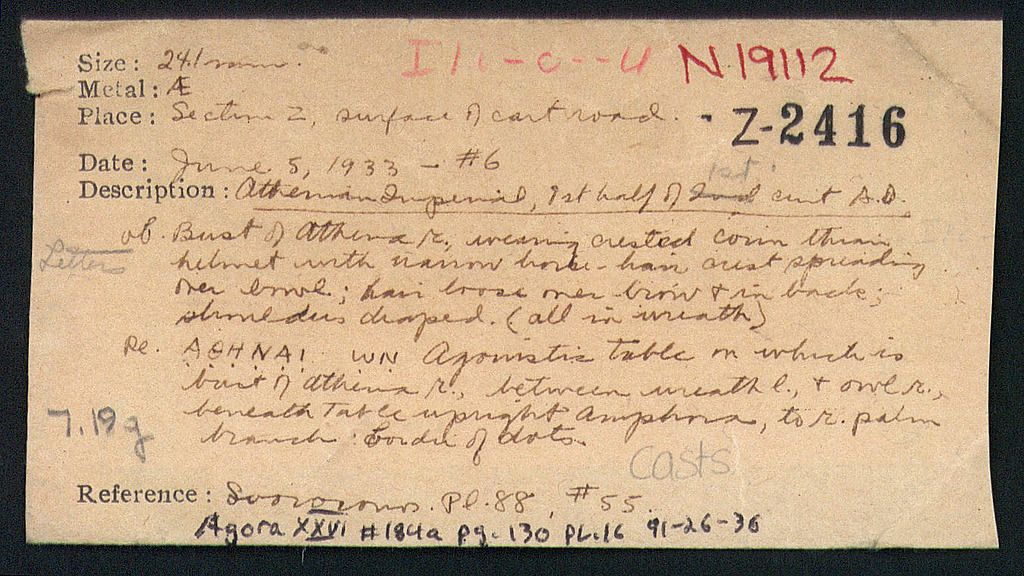 Size: 24.1 mm.
I / i - c - - 4 N.19112
Metal: Æ
Place: Section Z, surface of cart road. - Z-2416
Date: June 5, 1933 - #6
1st
Description: Athenian Imperial, 1st half of 2nd cent A.D.
ob. Bust of Athena r., wearing crested Corinthian
Letters
helmet with narrow horse-hair crest spreading
over bowl; hair loose over brow & in back;
shoulders draped. (all in wreath)
Re. ΑΘΗΝΑΙ ΩΝ Agonistic table on which is
bust of Athena r., between wreath l., & owl r.,
7.19g
beneath table upright amphora, to r. palm
branch: border of dots.
Casts
Reference: Svoronos. Pl. 88, #55.
Agora XXVI #184a pg. 130 PL.16 91-26-36